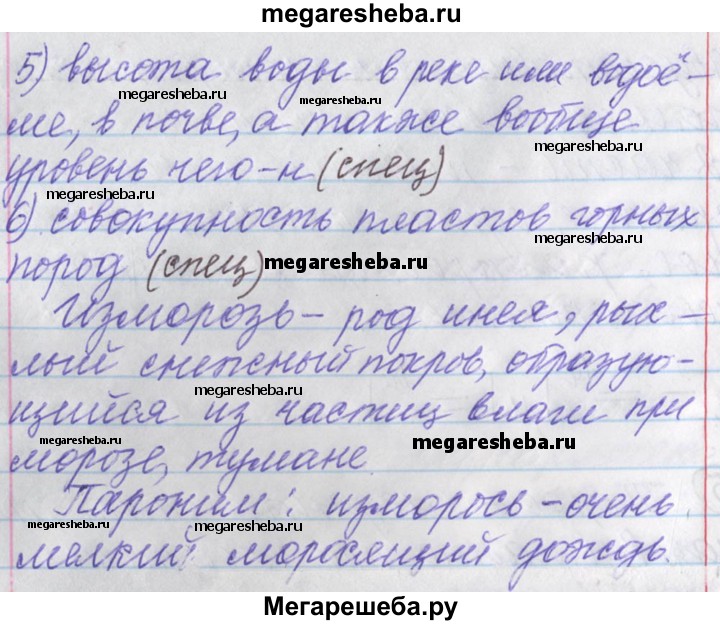 megaresheba.ru
5) высота воды в реке или водоё-
megaresheba.ru megaresheba.ru
ме, в почве, а также вообще
megaresheba.ru
уровень чего-н (спец)
megaresheba.ru
6) совокупность пластов горных
megaresheba.ru
пород (спец) megaresheba.ru
Изморозь – род инея, рых-
лый снежный покров, образую-
megaresheba.ru
щийся из частиц влаги при
megaresheba.ru megaresheba.ru
морозе, тумане.
Пароним: изморось – очень
megaresheba.ru megaresheba.ru
мелкий моросящий дождь.
Мегарешеба.ру